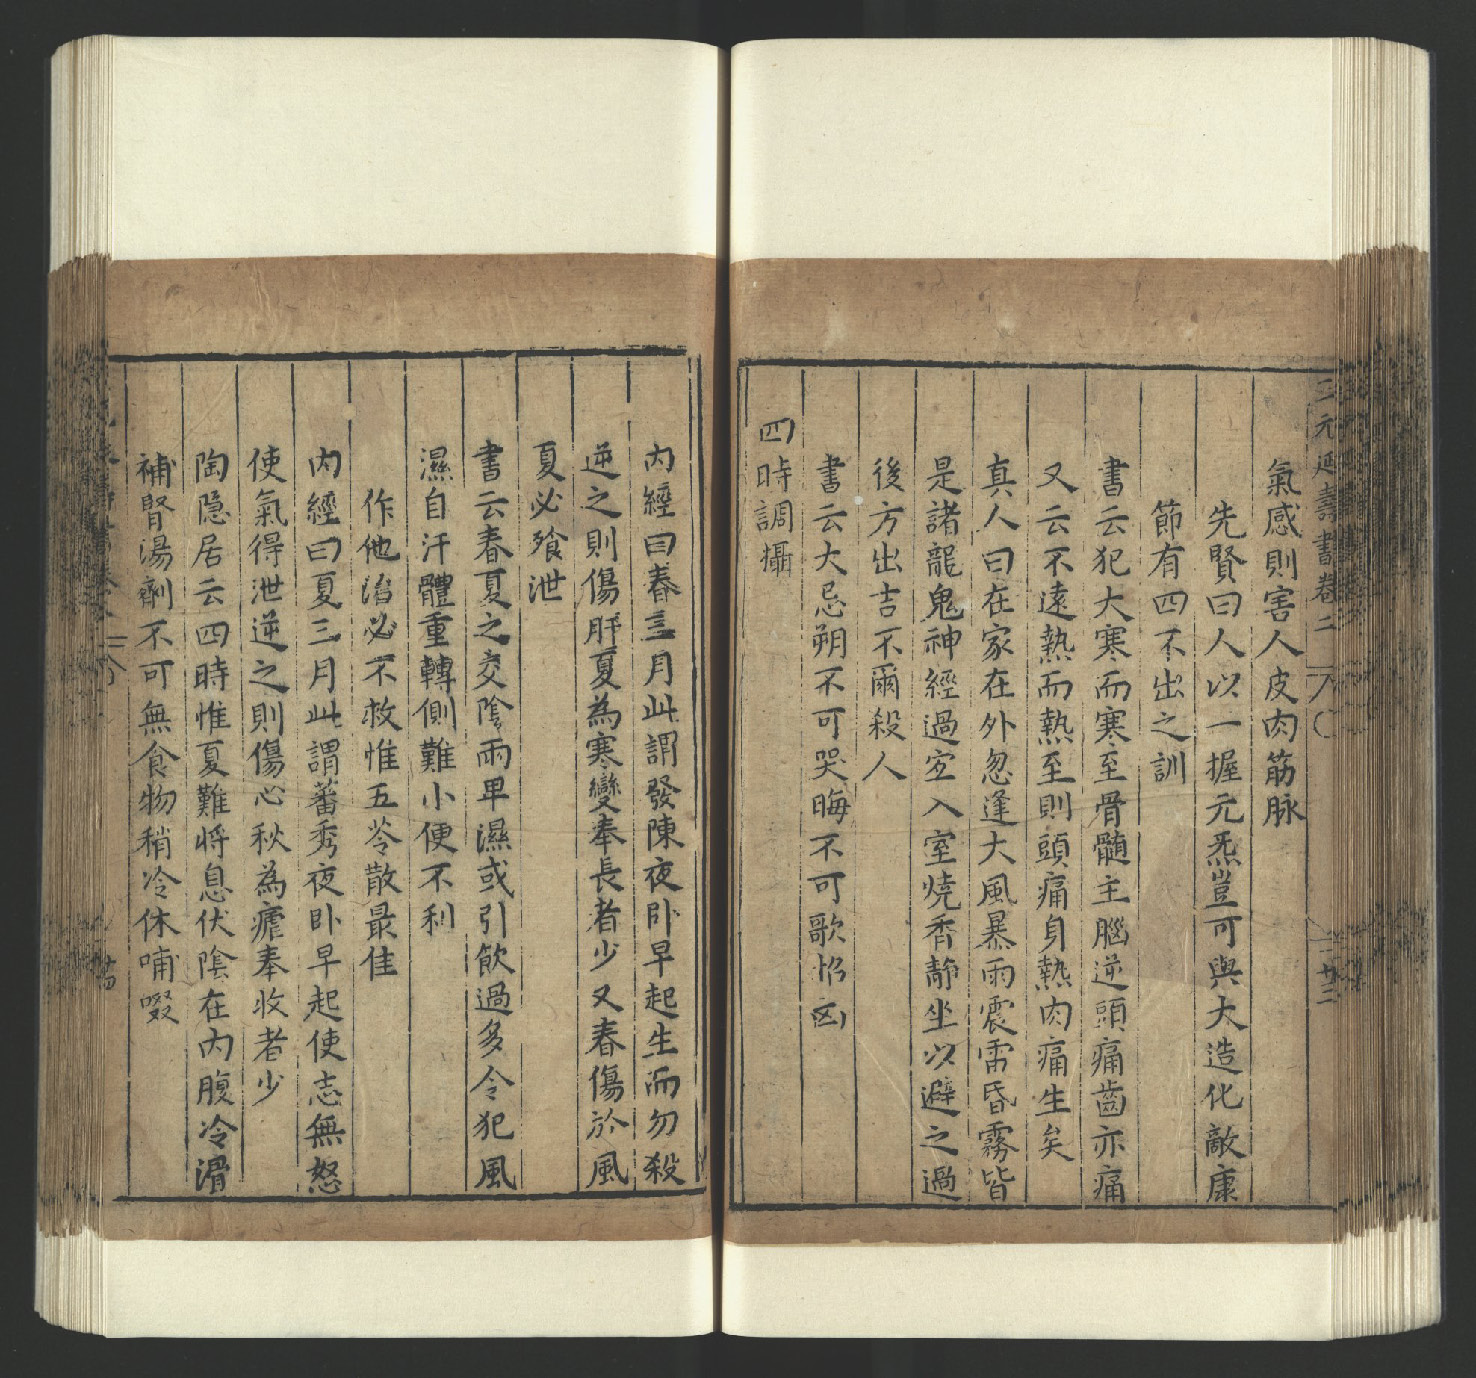 三元延壽書卷二
廿三
氣感則害人皮肉筋脉
先賢曰人以一握元炁豈可與大造化敵康
節有四不出之訓
書云犯大寒而寒至骨髓主腦逆頭痛齒亦痛
又云不遠熱而熱至則頭痛身熱肉痛生矣
真人曰在家在外忽逢大風暴雨震雷昏霧皆
是諸龍鬼神經過宜入室燒香靜坐以避之過
後方出吉不爾殺人
書云大忌朔不可哭晦不可歌招凶
四時調攝
內經曰春三月此謂發陳夜卧早起生而勿殺
逆之則傷肝夏為寒變奉長者少又春傷於風
夏必飱泄
書云春夏之交陰雨卑濕或引飲過多令犯風
濕自汗體重轉側難小便不利
作他治必不救惟五苓散最佳
內經曰夏三月此謂蕃秀夜卧早起使志無怒
使氣得泄逆之則傷心秋為瘧奉收者少
陶隱居云四時惟夏難將息伏陰在內腹冷滑
補腎湯劑不可無食物稍冷休哺啜